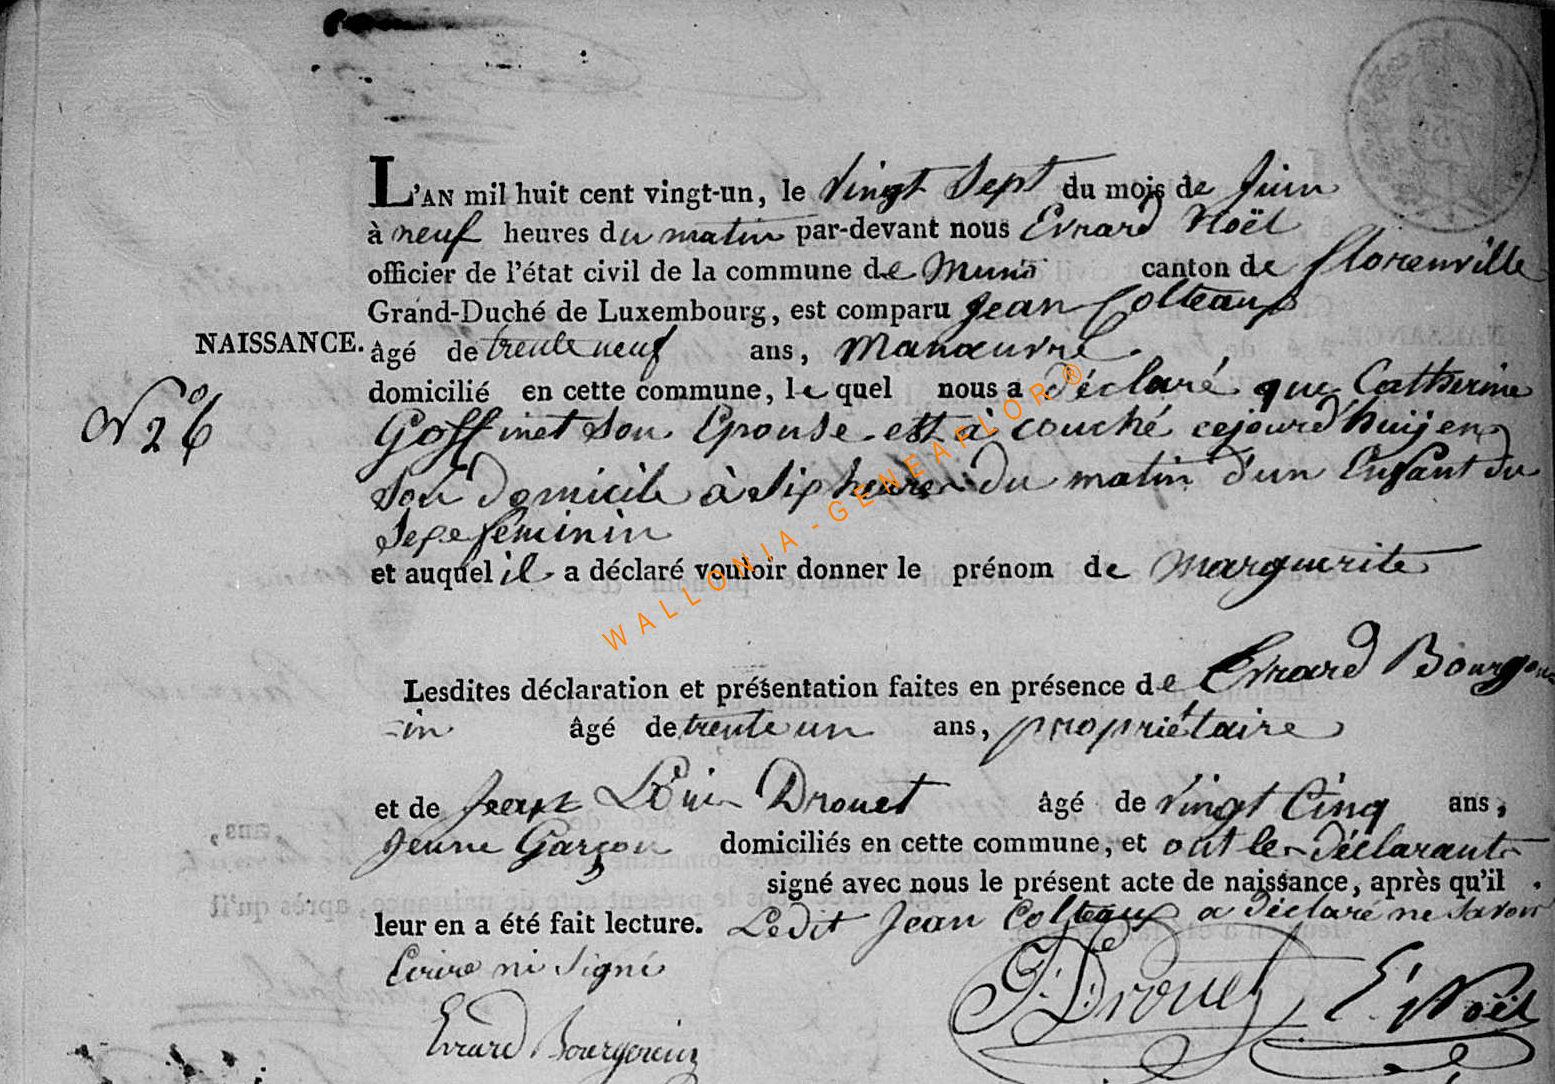 L'AN mil huit cent vingt-un, le vingt Sept du mois de Juin
à neuf heures du matin par-devant nous Evrard Noël
officier de l'état civil de la commune de Muno canton de florenville
Grand-Duché de Luxembourg, est comparu Jean Colteaux
NAISSANCE. âgé de trente neuf ans, Manœuvre
domicilié en cette commune, le quel nous a déclaré que Catherine
N° 26
Goffinet son Epouse est à couché cejourd'huij en
son domicile à Six heures du matin d'un Enfant du
Sexe féminin
et auquel il a déclaré vouloir donner le prénom de Marguerite
WALLONIA-GENEAFLOR®
Lesdites déclaration et présentation faites en présence de Evrard Bourgone
-in âgé de trente un ans, propriétaire
et de Louis Drouet âgé de vingt Cinq ans,
Jeune Garçon domiciliés en cette commune, et ont les déclarants
signé avec nous le présent acte de naissance, après qu'il
leur en a été fait lecture. Ledit Jean Colteaux a déclaré ne savoir
Ecrire ni signé
J: Drouet E. Noël
Evrard Bourgonein